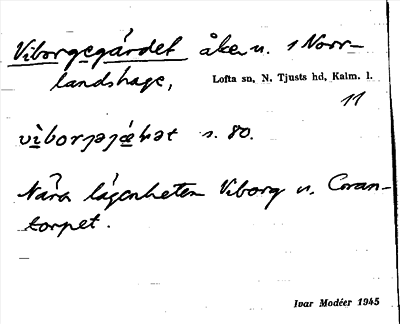 Viborgegärdet åker n. i Norr-
landshage,
Lofta sn, N. Tjusts hd, Kalm. l.
11
s. 80.
Nära lägenheten Viborg n.
torpet.
Ivar Modéer 1945